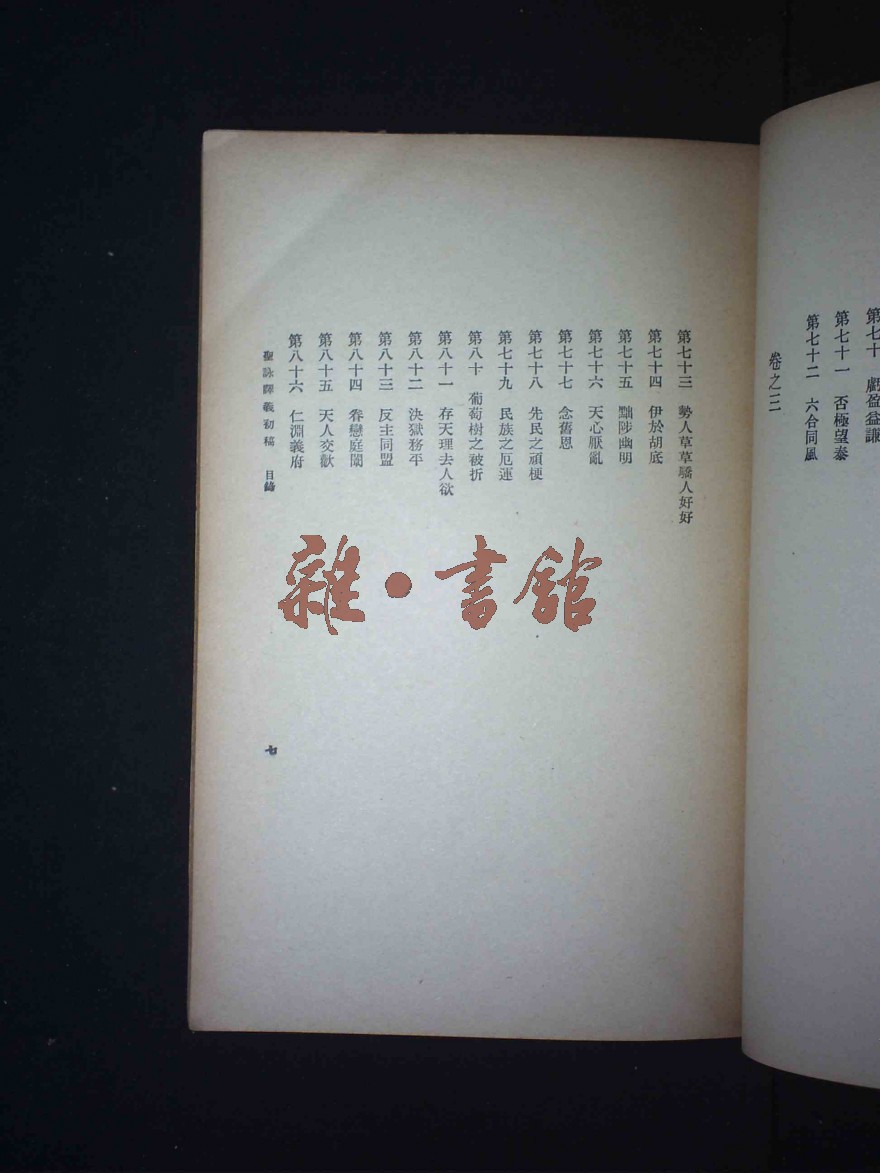 第七十 虧盈益謙
第七十一 否極望泰
第七十二 六合同風
卷之三
第七十三 勢人草草驕人好好
第七十四 伊於胡底
第七十五 黜陟幽明
第七十六 天心厭亂
第七十七 念舊恩
第七十八 先民之頑梗
第七十九 民族之厄運
第八十 葡萄樹之被折
第八十一 存天理去人欲
第八十二 決獄務平
第八十三 反主同盟
第八十四 眷戀庭闈
第八十五 天人交歡
第八十六 仁淵義府
聖詠譯義初稿 目錄
七
雜·書館